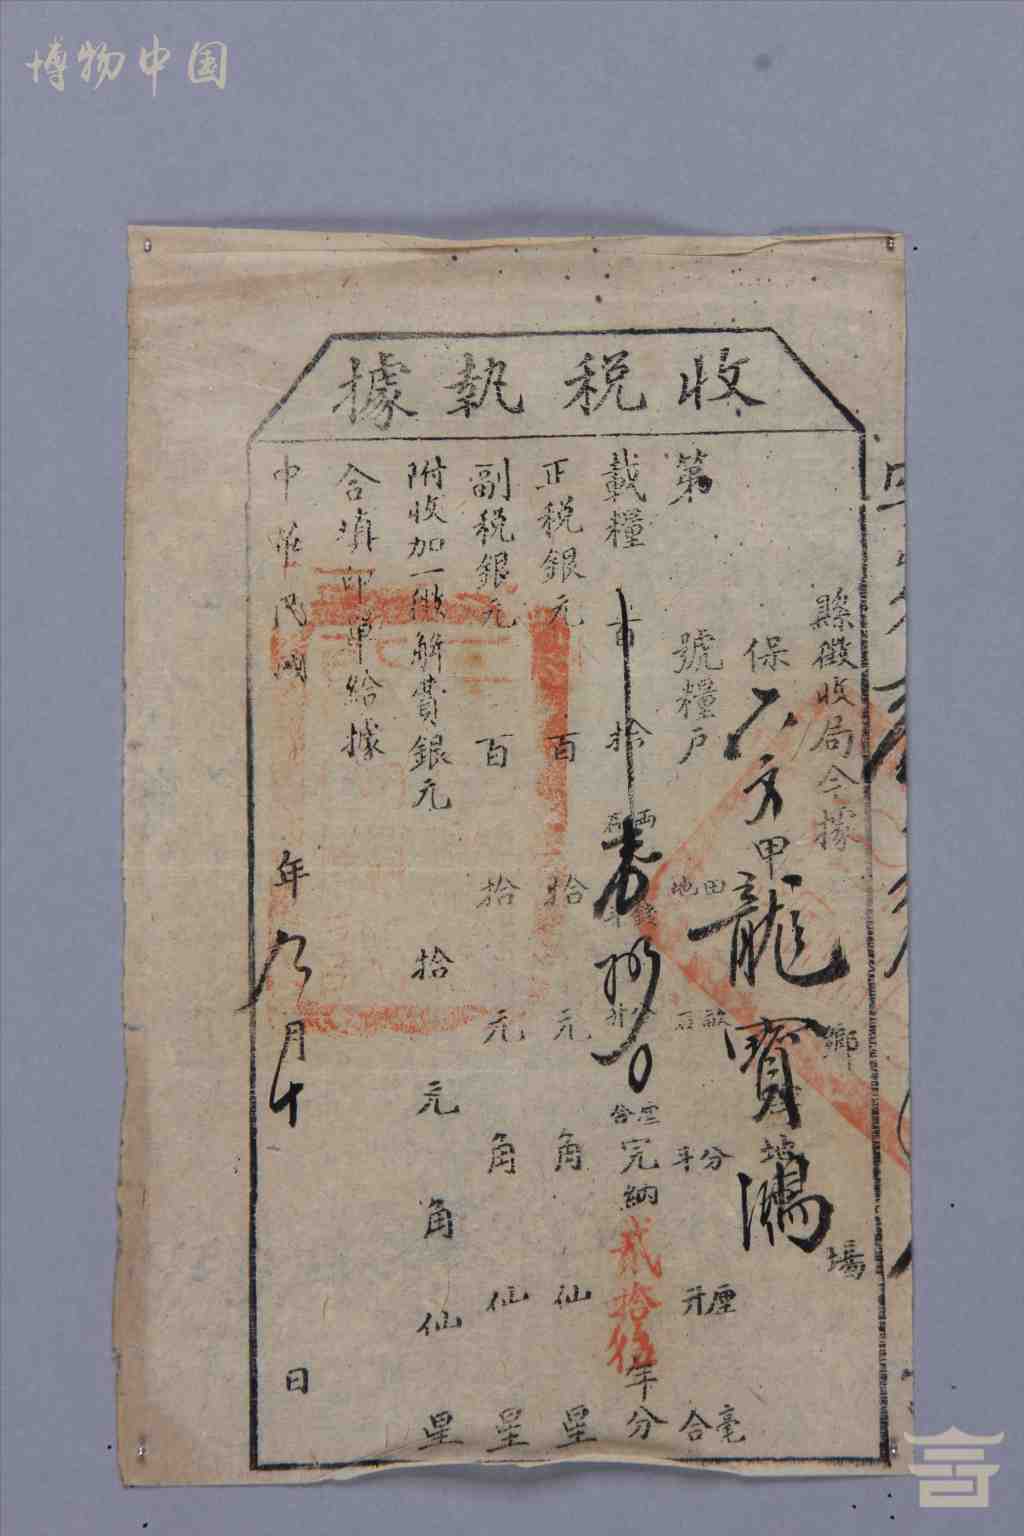 博物中国
收税執據
縣徵收局今據 鄉 場
保六方甲龍寶鴻 地
第 號糧戶 田地 畝石 分斗 厘升 毫合
載糧 百 拾 兩石 錢斗 分升 厘合 完納貳拾伍年分
正税銀元 百 拾 元 角 仙 星
副税銀元 百 拾 元 角 仙 星
附收加一徵解費銀元 拾 元 角 仙 星
合填印单給據
中華民國 年 九月十 日